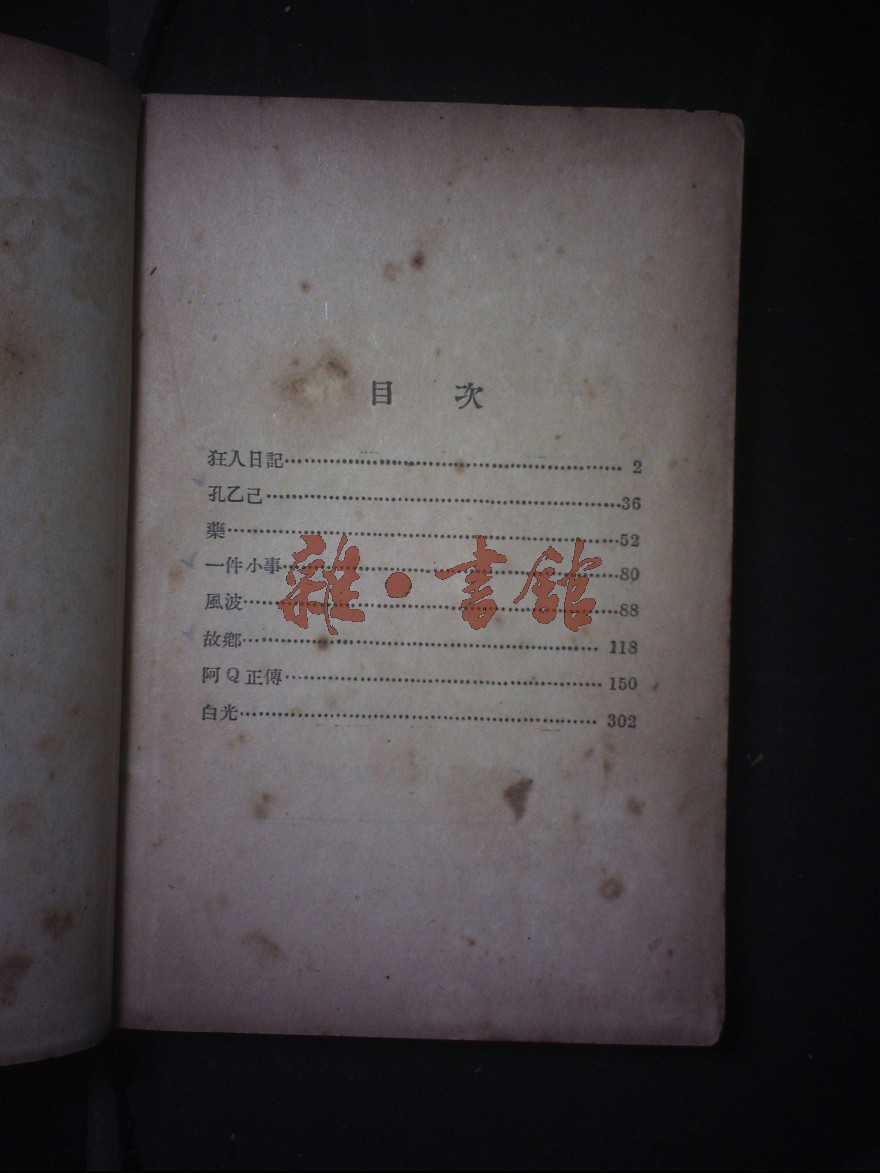 目 次
狂人日記………………………………2
孔乙己………………………………36
藥………………………………52
一件小事………………………………80
風波………………………………88
故鄉………………………………118
阿Q正傳………………………………150
白光………………………………302
雜·書館